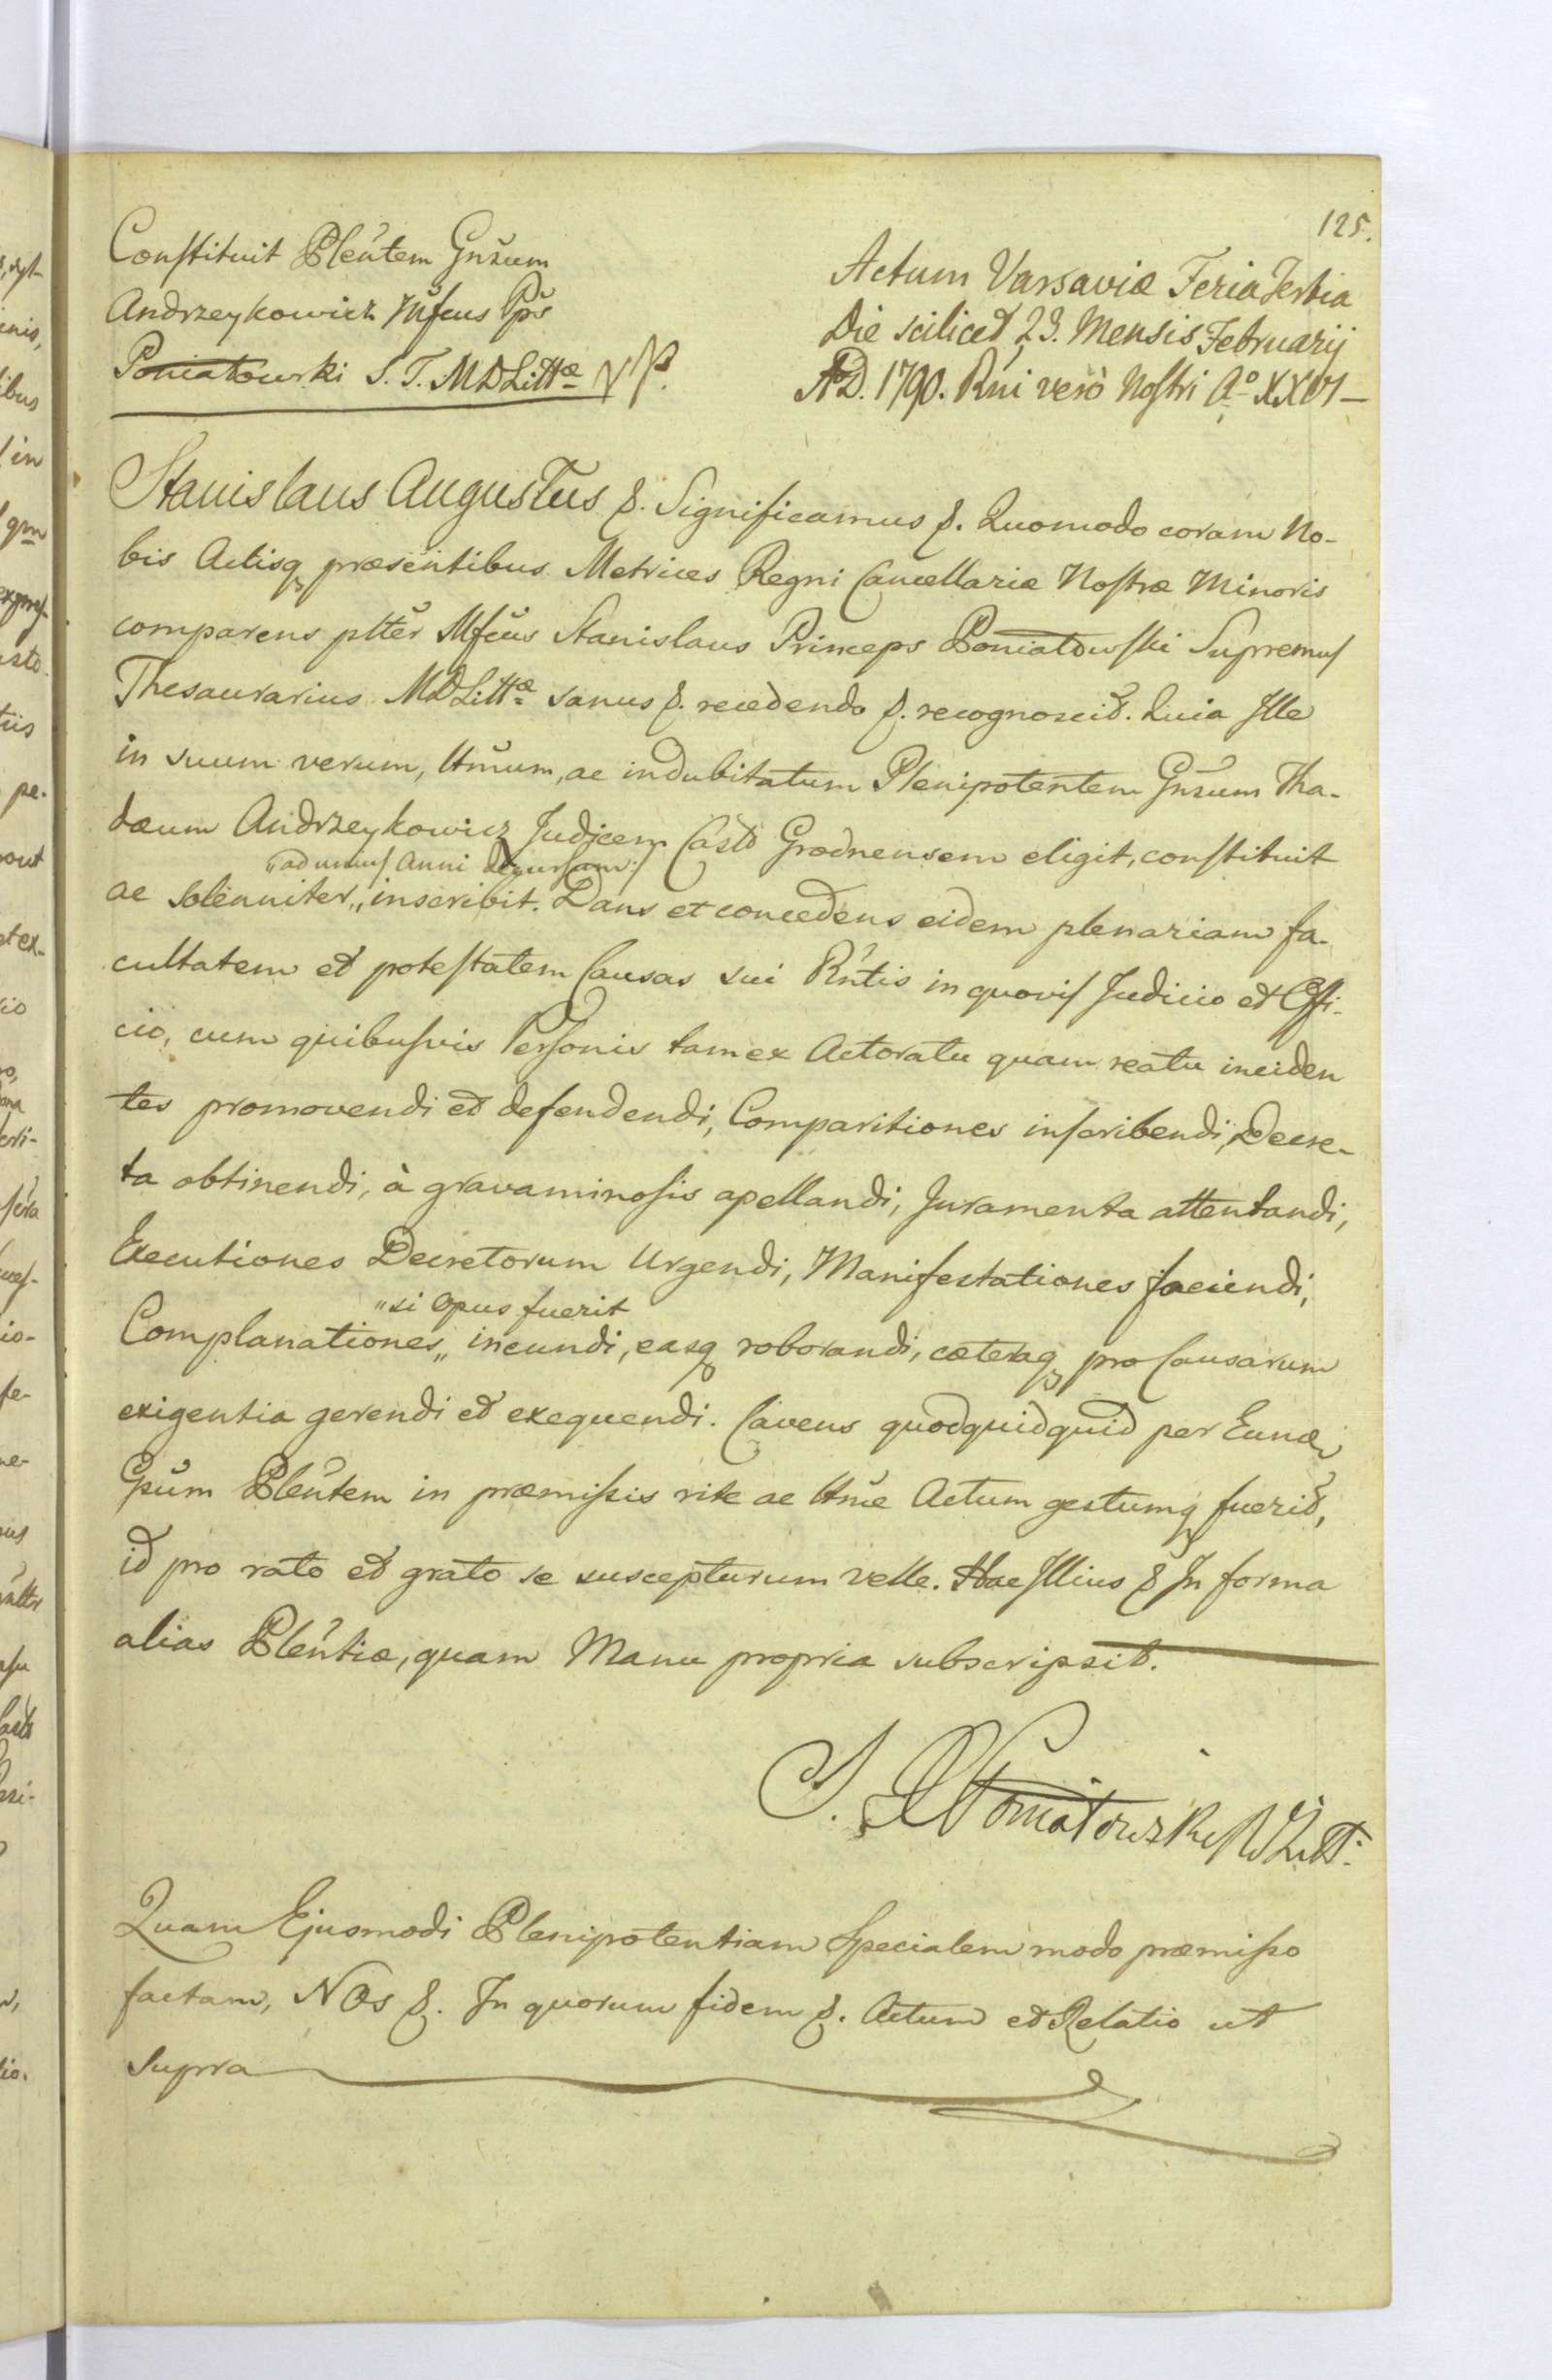 125.
Constituit Plen̄tem Gn̄sum
Andrzeykowicz Mn̄fcus Pp̄s
Poniatowski S. T. MDLittæ
Actum Varsaviæ Feria Tertia
Die scilicet 23. Mensis Februarij
AD. 1790. Rn̄i verò Nostri Aº XXVI –
Stanislaus Augustus &. Significamus &. Quomodo coram No-
bis Actisq præsentibus Metrices Regni Cancellariæ Nostræ Minoris
comparens pltter Mfcus Stanislaus Princeps Poniatowski Supremus
Thesaurarius MDLittæ sanus &. recedendo &. recognoscit. Quia Ille
in suum verum, ltm̄um, ac indubitatum Plenipotentem Gn̄sum Tha-
dæum Andrzeykowicz Judicem Castr Grodnensem eligit, constituit
„ad unius Anni decursum:/
ac solenniter „ inscribit. Dans et concedens eidem plenariam fa-
cultatem et potestatem Causas sui Rn̄tis in quovis Judicio et Offi-
cio, cum quibusvis Personis tam ex Actoratu quam reatu inciden
tes promovendi et defendendi, Comparitiones inscribendi, Decre-
ta obtinendi, à gravaminosis apellandi, Juramenta attentandi,
Executiones Decretorum Urgendi, Manifestationes faciendi,
„si Opus fuerit
Complanationes „ ineundi, easq roborandi, cæteraq pro Causarum
exigentia gerendi et exequendi. Cavens quodquidquid per Eund
Gsum Plen̄tem in præmissis rite ac ltm̄e Actum gestumq fuerit,
id pro rato et grato se suscepturum velle. Hac Illius & In forma
alias Plen̄tiæ, quam Manu propria subscripsit.
S. Poniatowski
Quam Ejusmodi Plenipotentiam Specialem modo præmisso
factam, NOs &. In quorum fidem &. Actum et Relatio ut
supra